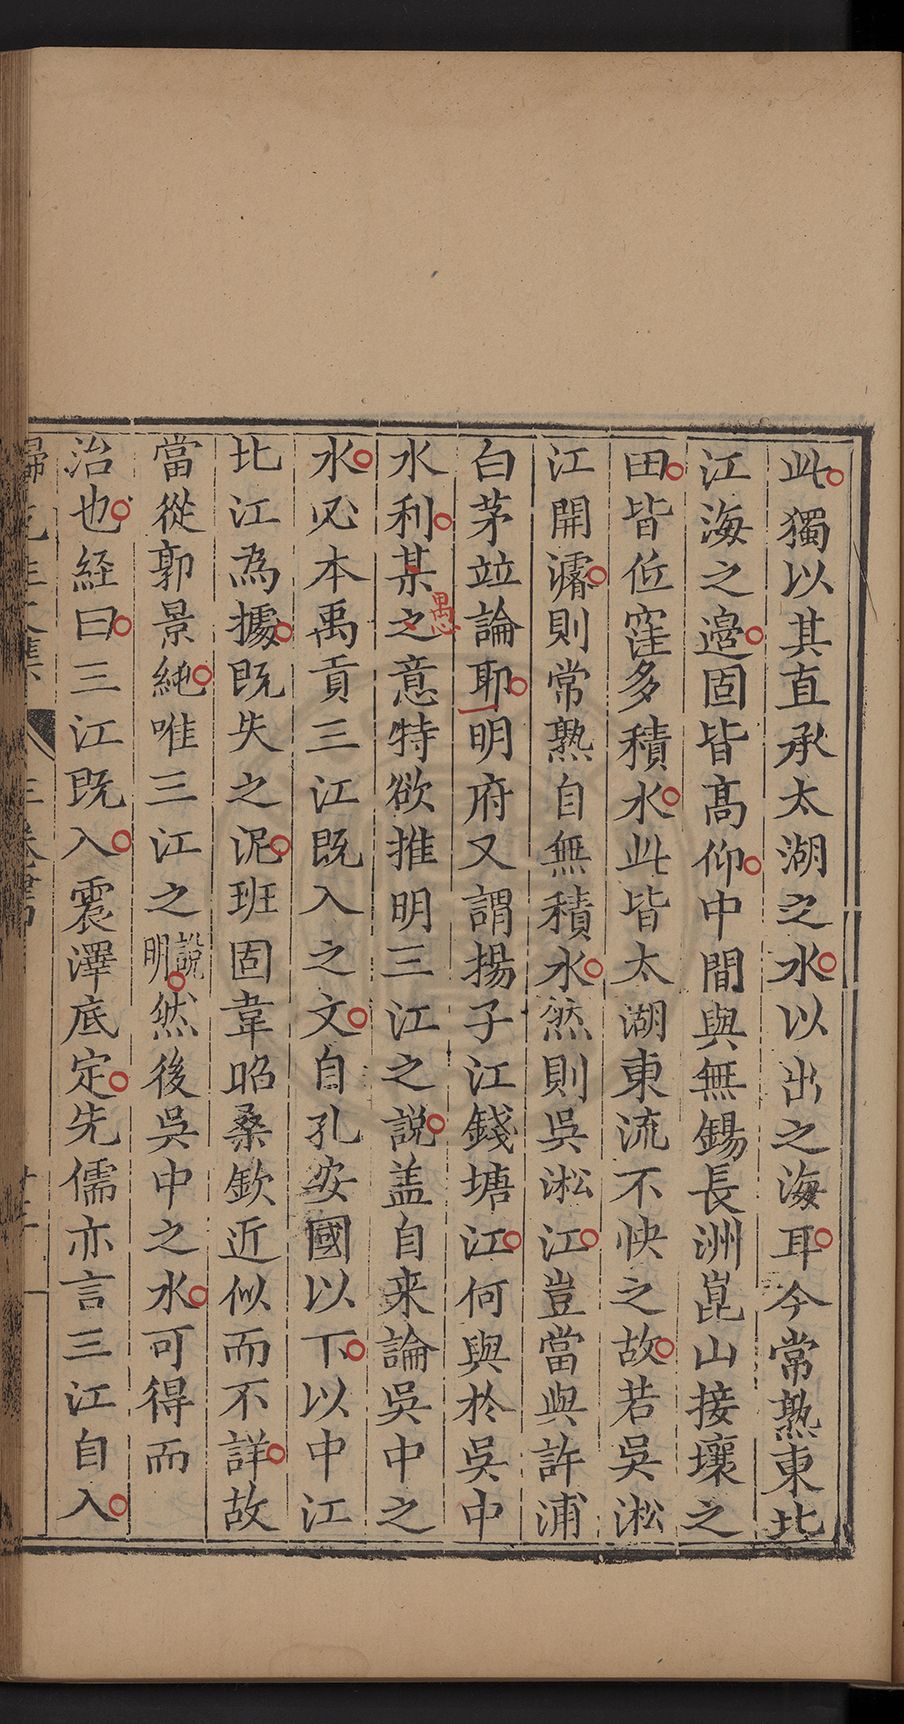 此獨以其直承太湖之水以出之海耳今常熟東北
江海之邉固皆髙仰中間與無錫長洲崑山接壤之
田皆低窪多積水此皆太湖東流不快之故若吳淞
江開濬則常熟自無積水然則吳淞江豈當與許浦
白茅竝論耶明府又謂揚子江錢塘江何與於吳中
水利某之意特欲推明三江之説盖自来論吳中之
愚
水必本禹貢三江既入之文自孔安國以下以中江
北江為據既失之泥班固韋昭桑欽近似而不詳故
當從郭景純唯三江之説明然後吳中之水可得而
治也経曰三江既入震澤底定先儒亦言三江自入